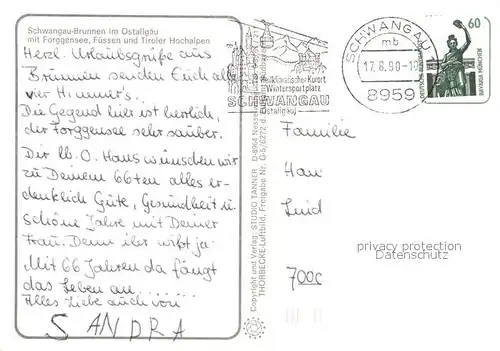 Schwangau-Brunnen im Ostallgäu
mit Forggensee, Füssen und Tiroler Hochalpen
Herzl. Urlaubsgrüße aus
Brunnen senden Euch alle
vier
Die Gegend hier ist herrlich,
der Forggensee sehr sauber.
Dir lb. O. Hans wünschen wir
zu Deinem 66ten alles er-
denklich Gute, Gesundheit u.
schöne Jahre mit Deiner
Frau. Denn ihr wißt ja
Mit 66 Jahren da fängt
das Leben an........
Alles Liebe auch von
SANDRA
Copyright und Verlag: STUDIO TANNER D-8964 Nesselwang
THORBECKE-Luftbild, Freigabe Nr. G-5/6272 d
Heilklimatischer Kurort
Wintersportplatz
SCHWANGAU
Ostallgäu
SCHWANGAU
mb
17.8.90-1
8959
60
DEUTSCHE
BAVARIA MÜNCHEN
Familie
Han
Lind
7000
privacy protection
Datenschutz